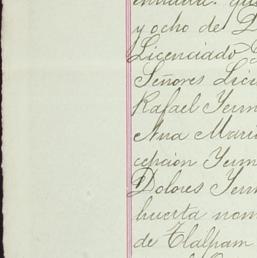 y ocho de D
Licenciado
Señores Lici
Rafael Yerm
Ana Marí
cepcion Yerm
Dolores Yerm
huerta nom
de Tlalpam